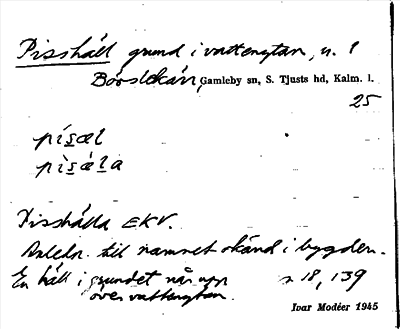 Pisshäll grund i vattenytan, n. f
Börslekärr, Gamleby sn, S. Tjusts hd, Kalm. l.
25
písæl
pìsǽla
Pisshälla EKV.
Anledn. till namnet okänd i bygden.
En häll i grundet når upp s 18, 139
över vattenytan.
Ivar Modéer 1945